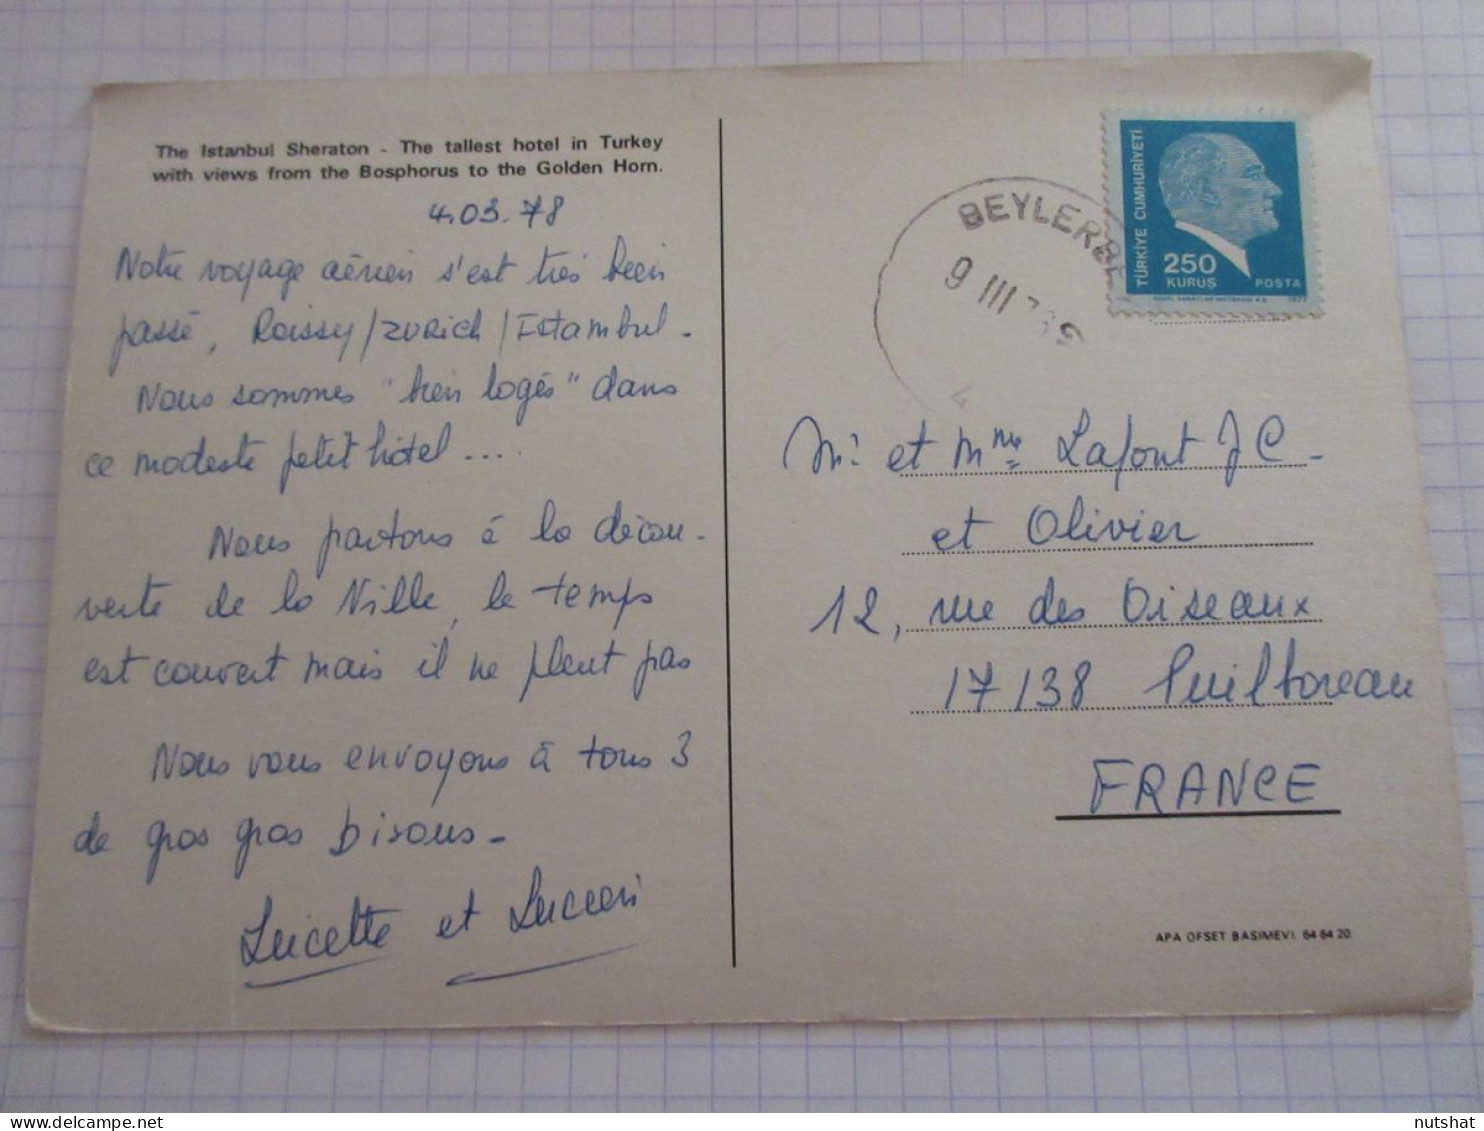 The Istanbul Sheraton - The tallest hotel in Turkey
with views from the Bosphorus to the Golden Horn.
4.03.78
Notre voyage aérien s'est très bien
passé, Roissy/ZURICH/Istambul.
Nous sommes "bien logés" dans
ce modeste petit hôtel ....
Nous partons à la décou-
verte de la Ville, le temps
est couvert mais il ne pleut pas
Nous vous envoyons à tous 3
de gros gros bisous.
Lucette et Lucien
BEYLERBE
9 III
TÜRKİYE CUMHURİYETİ
250
KURUŞ
POSTA
1977
Mr et Mme Lafont JC.
et Olivier
12, rue des Oiseaux
17138 Puilboreau
FRANCE
APA OFSET BASIMEVI. 64 64 20
nutshat
delcampe.net